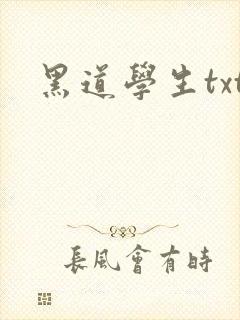 黑道學生txt
長風會有時